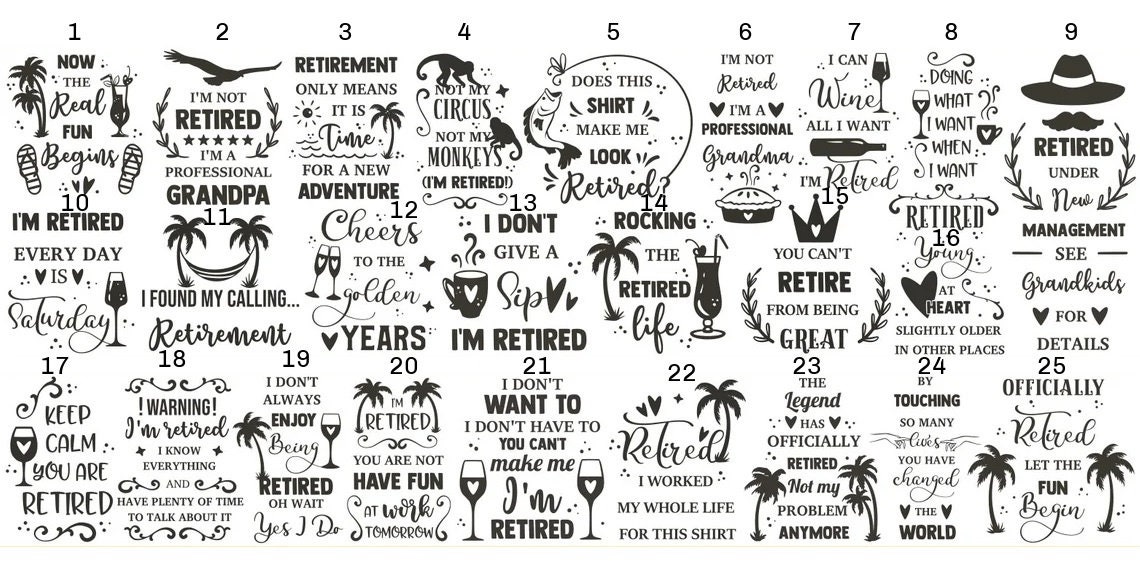 1
NOW
THE
Real
FUN
Begins
2
I'M NOT
RETIRED
I'M A
PROFESSIONAL
GRANDPA
3
RETIREMENT
ONLY MEANS
IT IS
Time
FOR A NEW
ADVENTURE
4
NOT MY
CIRCUS
NOT MY
MONKEYS
(I'M RETIRED!)
5
DOES THIS
SHIRT
MAKE ME
LOOK
Retired?
6
I'M NOT
Retired
I'M A
PROFESSIONAL
Grandma
7
I CAN
Wine
ALL I WANT
I'M Retired
8
DOING
WHAT
I WANT
WHEN
I WANT
RETIRED
9
RETIRED
UNDER
New
MANAGEMENT
SEE
Grandkids
FOR
DETAILS
10
I'M RETIRED
EVERY DAY
IS
Saturday
11
I FOUND MY CALLING...
Retirement
12
Cheers
TO THE
golden
YEARS
13
I DON'T
GIVE A
Sip
I'M RETIRED
14
ROCKING
THE
RETIRED
life
15
YOU CAN'T
RETIRE
FROM BEING
GREAT
16
Young
AT
HEART
SLIGHTLY OLDER
IN OTHER PLACES
17
KEEP
CALM
YOU ARE
RETIRED
18
! WARNING!
I'm retired
I KNOW
EVERYTHING
AND
HAVE PLENTY OF TIME
TO TALK ABOUT IT
19
I DON'T
ALWAYS
ENJOY
Being
RETIRED
OH WAIT
Yes I Do
20
I'M
RETIRED
YOU ARE NOT
HAVE FUN
AT work
TOMORROW
21
I DON'T
WANT TO
I DON'T HAVE TO
YOU CAN'T
make me
I'm
RETIRED
22
Retired
I WORKED
MY WHOLE LIFE
FOR THIS SHIRT
23
THE
Legend
HAS
OFFICIALLY
RETIRED
Not my
PROBLEM
ANYMORE
24
BY
TOUCHING
SO MANY
lives
YOU HAVE
changed
THE
WORLD
25
OFFICIALLY
Retired
LET THE
FUN
Begin